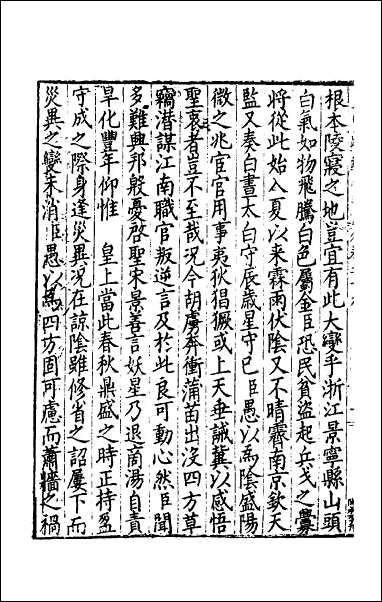 根本陵寢之地豈宜有此大變乎浙江景寧縣山頭
白氣如物飛騰白色屬金臣恐民貧盜起兵戈之釁
將從此始入夏以来霖雨伏陰又不晴霽南京欽天
監又奏白晝太白守辰歲星守巳臣愚以為陰盛陽
微之兆宦官用事夷狄猖獗或上天垂誡冀以感悟
聖衷者豈不至哉况今胡虜奔衝蒲笛出没四方草
竊潛謀江南職官叛逆言及於此良可動心然臣聞
多難興邦殷憂啓聖宋景善言妖星乃退商湯自責
旱化豐年仰惟 皇上當此春秋鼎盛之時正持盈
守成之際身逢災異况在諒陰雖修省之詔屢下而
災異之變未消臣愚以為四方固可慮而蕭牆之禍